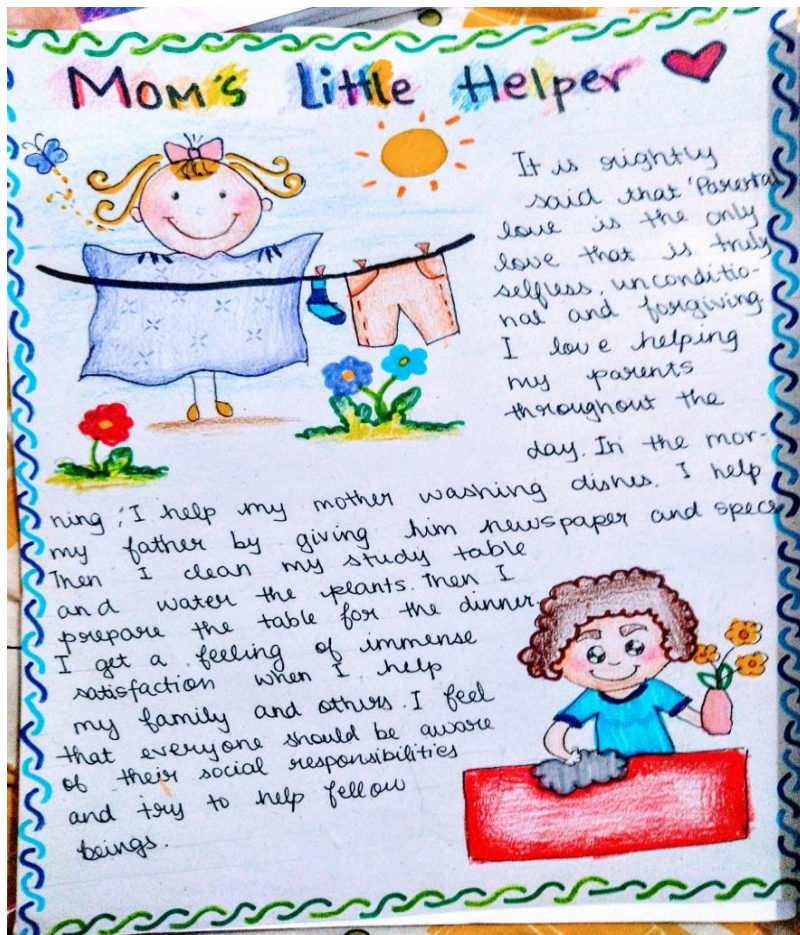 Mom's Little Helper
It is rightly
said that 'Parental
love is the only
love that is truly
selfless, unconditio-
nal and forgiving.
I love helping
my parents
throughout the
day. In the mor-
ning, I help my mother washing dishes. I help
my father by giving him newspaper and specs
Then I clean my study table
and water the plants. Then I
prepare the table for the dinner.
I get a feeling of immense
satisfaction when I help
my family and others. I feel
that everyone should be aware
of their social responsibilities
and try to help fellow
beings.